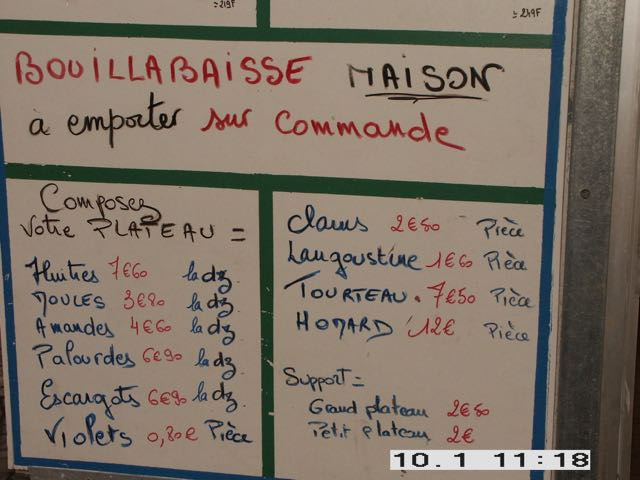 ≈219F
≈249F
BOUILLABAISSE MAISON
à emporter sur commande
Composez
Votre PLATEAU =
Huitres 7€60 la dz
MOULES 3€80 la dz
Amandes 4€60 la dz
Palourdes 6€90 la dz
Escargots 6€90 la dz
Violets 0,80€ Pièce
Clams 2€80 Pièce
Langoustine 1€60 Pièce
TOURTEAU 7€50 Pièce
HOMARD 12€ Pièce
Support =
Grand plateau 2€80
Petit plateau 2€
10. 1 11:18